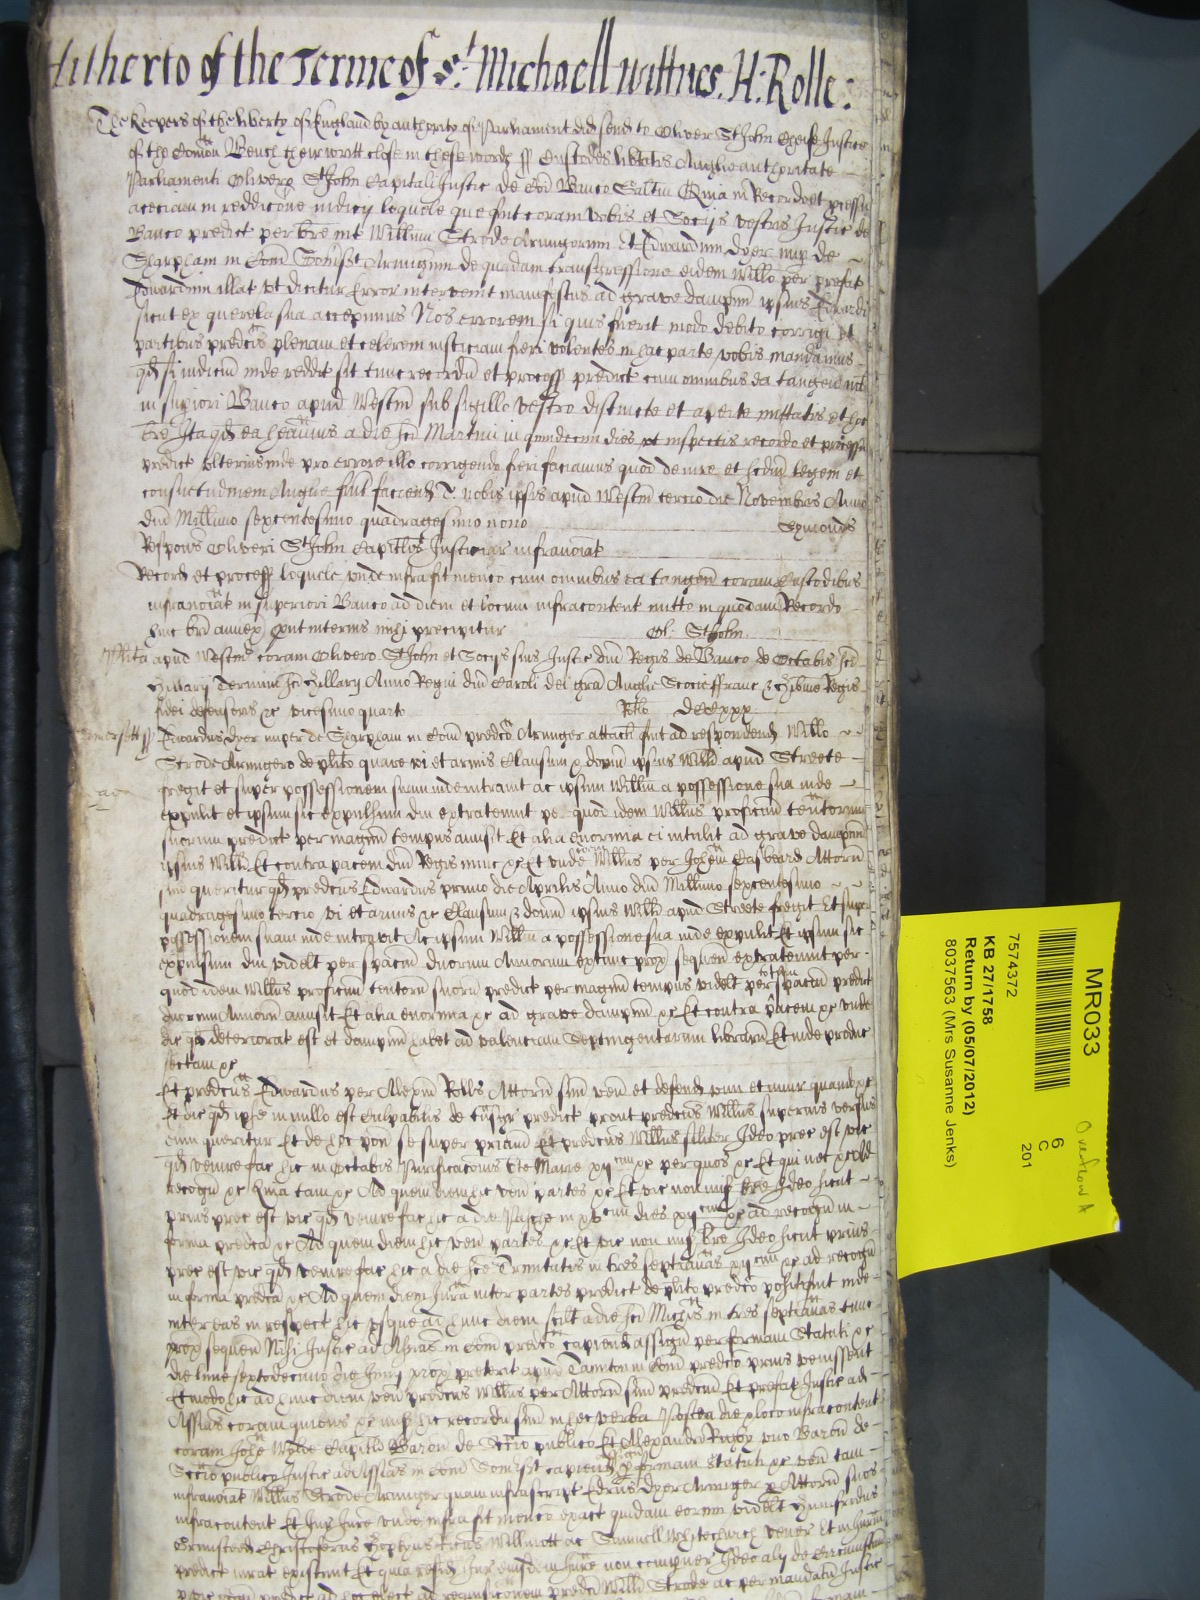 Hitherto of the Terme of St. Michaell Wittnes. H: Rolle:
The Keepers of the liberty of England by authority of Parliament did send to Oliver St John Cheife Justice
of the Comon Bench their writt close in these words ss Custodes libtatis Anglie authoritate
Parliamenti Olivero St John Capitali Justic de Coi Banco Saltm Quia in Recordo et processu
ac eciam in reddicone iudicij loquele que fuit coram vobis et Socijs vestris Justic de
Banco predict per bre int Willum Strode Armigerum et Edwardum Dyer nup de
Sharpham in Com Somset Armigum de quadam transgressione eidem Willo per prefat
Edwardum illat ut dicitur Error intervenit manifestus ad grave dampnu ipsius Edwardi
sicut ex querela sua accepimus Nos errorem si quis fuerit modo debito corrigi et
partibus predcis plenam et celerem iusticiam fieri volentes in hac parte vobis mandamus
qd si iudicium inde reddit sit tunc recordu et processu predict cum omnibus ea tangen nob
in supiori Banco apud Westm sub sigillo vestro distincte et aperte mittatis et hoc
bre Ita qd ea heamus a die sci Martini in quindecim dies ut inspectis recordo et processu
predict ulterius inde pro errore illo corrigendo fieri faciamus quod de iure et scdm legem et
consuetudinem Anglie fuit faciend T. nobis ipsis apud Westm tercio die Novembris Anno
Dni Millimo sexcentesimo quadragesimo nono Symonds
Respons Oliveri St John Capitlis Justiciar infranoiat
Record et process loquele unde infra fit mencio cum omnibus ea tangen coram Custodibus
infranoiat in superiori Banco ad diem et locum infracontent mitto in quodam Recordo
huic bri annex put interius mihi precipitur Ol: St John
Plita apud Westm coram Olivero St John et Socijs suis Justic Dni Regis de Banco de Octabis sci
Hillarij Termino sci Hillarij Anno Regni Dni Caroli dei gra Anglie Scocie Franc & Hibnie Regis
fidei defensoris &c vicesimo quarto Rotlo
Somersett ss Edwardus Dyer nuper de Sharpham in Com predco Armiger attach fuit ad respondend Willo
Strode Armigero de plito quare vi et armis Clausum & domu ipsius Willi apud Streete
fregit et super possessionem suam inde intravit ac ipsum Willm a possessione sua inde
expulit et ipsum sic expulsum diu extratenuit p quod idem Willus proficuu tentorum
suorum predict per magnu tempus amisit Et alia enormia ei intulit ad grave dampnu
ipsius Willi Et contra pacem Dni Regis nunc &c Et unde idem Willus per Johem Attorn
suu queritur qd predcus Edwardus primo die Aprilis Anno Dni Millimo sexcentesimo
quadragesimo tercio vi et armis &c Clausum & domu ipsius Willi apud Streete fregit Et super
possessionem suam inde intravit Ac ipsum Willm a possessione sua inde expulit Et ipsum sic
expulsum diu videlt per spacium duorum Annorum extunc prox sequen extratenuit per
quod idem Willus proficuu tentoru suoru predict per magnu tempus videlt per totum spacium predict
duorum Annoru amisit Et alia enormia &c ad grave dampnu &c Et contra pacem &c unde
dic qd deteriorat est et dampnu habet ad valenciam Septingentarum librarum Et inde producit
sectam &c
Et predcus Edwardus per Alexm Rolls Attorn suu ven et defend vim et iniur quando &c
Et dic qd ipse in nullo est culpabilis de transgr predict prout predcus Willus superius versus
eum queritur Et de hoc pon se super priam Et predcus Willus silter Ideo prec est vic
qd venire fac hic in Octabis Purificacois be Marie xij &c per quos &c Et qui nec &c Ad
recogn &c Quia tam &c Ad quem diem hic ven partes &c Et vic non mis bre Ideo sicut
prius prec est vic qd venire fac hic a die Pasche in xv dies xij &c ad recogn in
forma predca &c Ad quem diem hic ven partes &c Et vic non mis bre Ideo sicut prius
prec est vic qd venire fac hic a die sce Trinitatis in tres septimanas xij &c ad recogn
in forma predca &c Ad quem diem Jura inter partes predict de plito predco posit fuit inde
inter eas in respect hic usque ad hunc diem scilt a die sci Michis in tres septimanas tunc
prox sequen Nisi Justic ad Assias in Com predco capiend assign per formam Statuti &c
die Lune septodecimo die prox preterit apud Taunton in Com predco prius venissent
Et modo hic ad hunc diem ven predcus Willus per Attorn suu predcm Et prefat Justic ad
Assias coram quibus &c mis hic recordu suu in hec verba Postea die & loco infracontent
coram Johe Wylde Capitli Baron de Sccio publico Et Alexandro Rigby uno Baron de
Sccio publico Justic ad Assias in Com Somset capiend assign p formam Statuti &c ven tam
infranoiat Willus Strode Armiger quam infrascript Edrus Dyer Armiger p Attorn suos
infracontent Et Jur Jure unde infra fit mencio exact quidam eorum videlt Humfridus
Christoferus Willmott ac Samuell Whytechurch vener Et in Juram
predict iurat existunt Et quia resid Jur eiusdem Jure non comparuer Ideo alij de circumstan
Willi Strode ac per mandatu Justic
MR033
7574372
KB 27/1758
Return by (05/07/2012)
8037563 (Mrs Susanne Jenks)
6
C
201
Overflow A